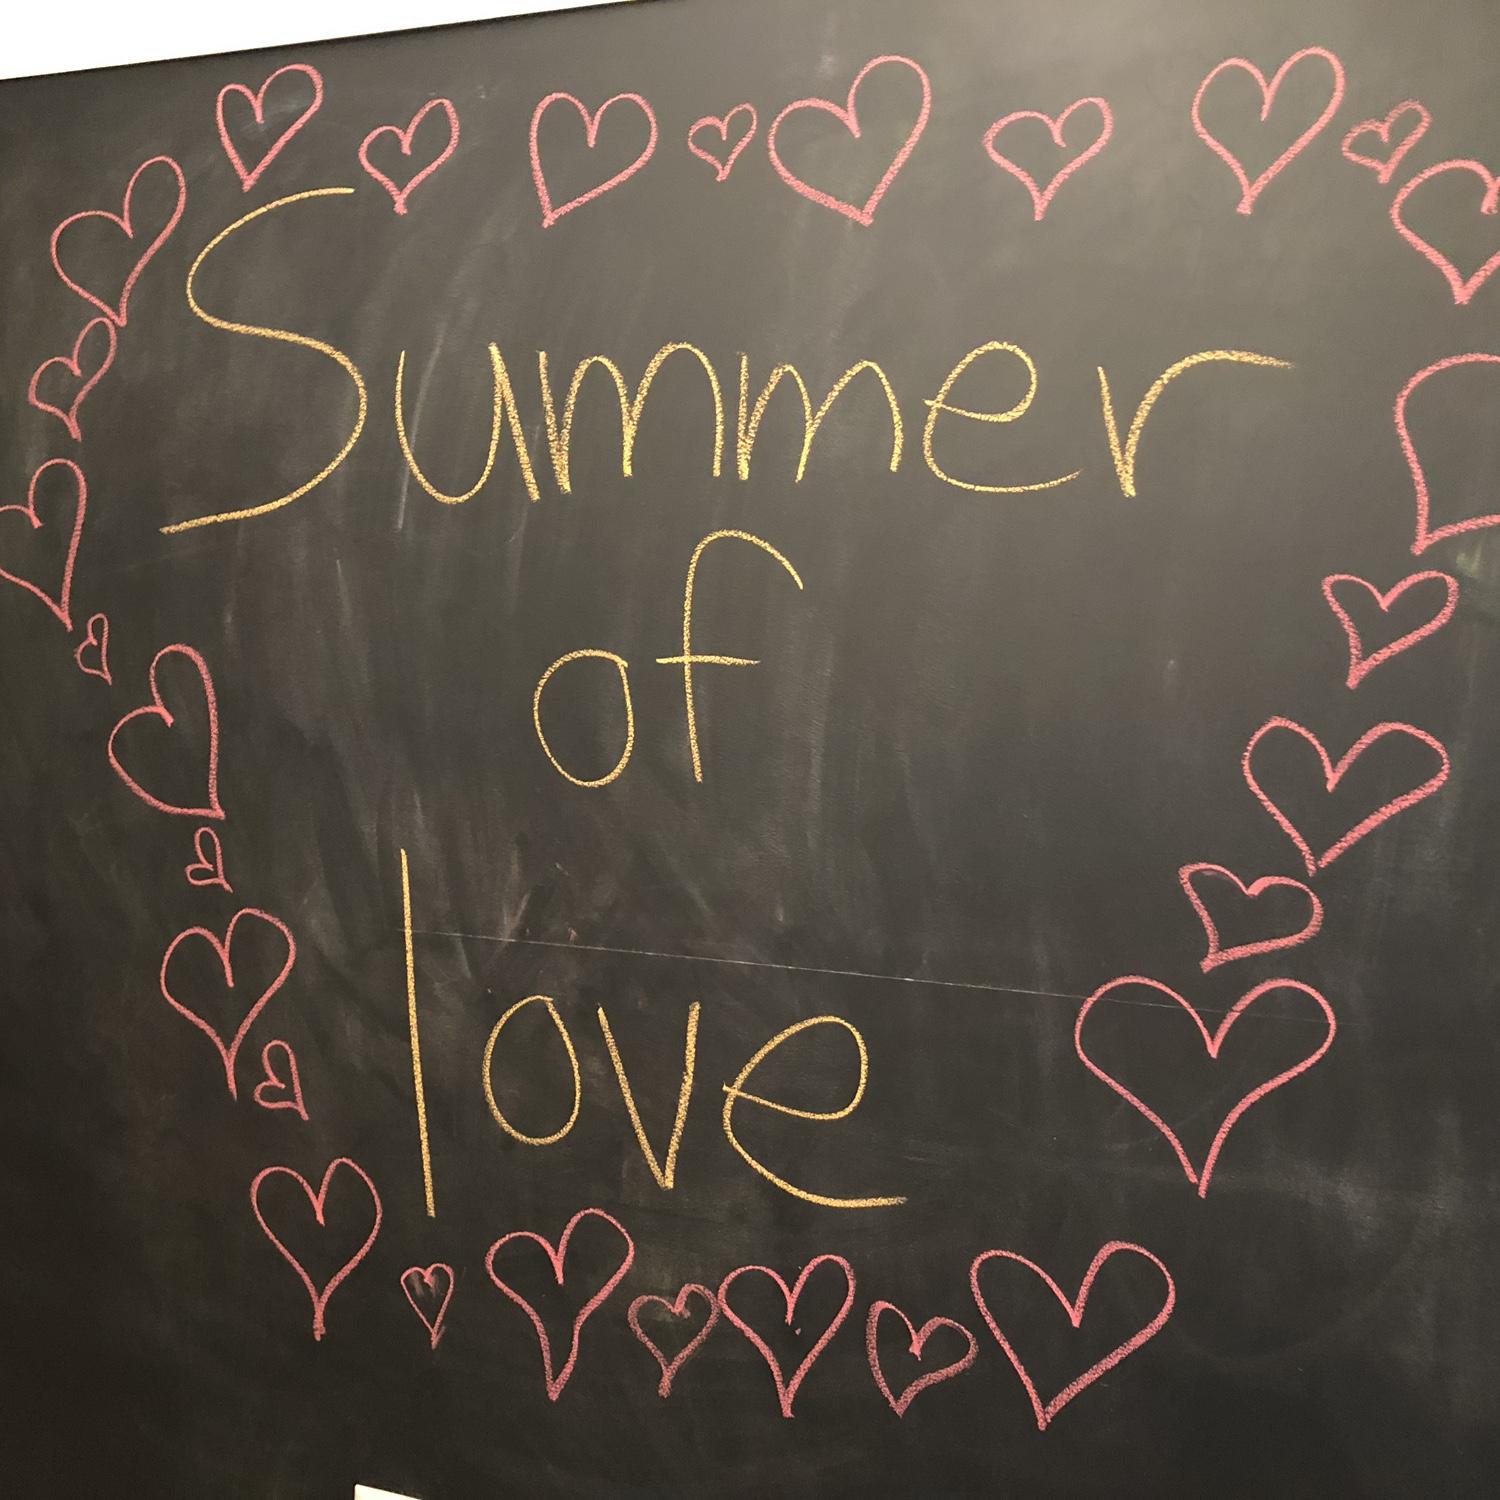 Summer
of
love